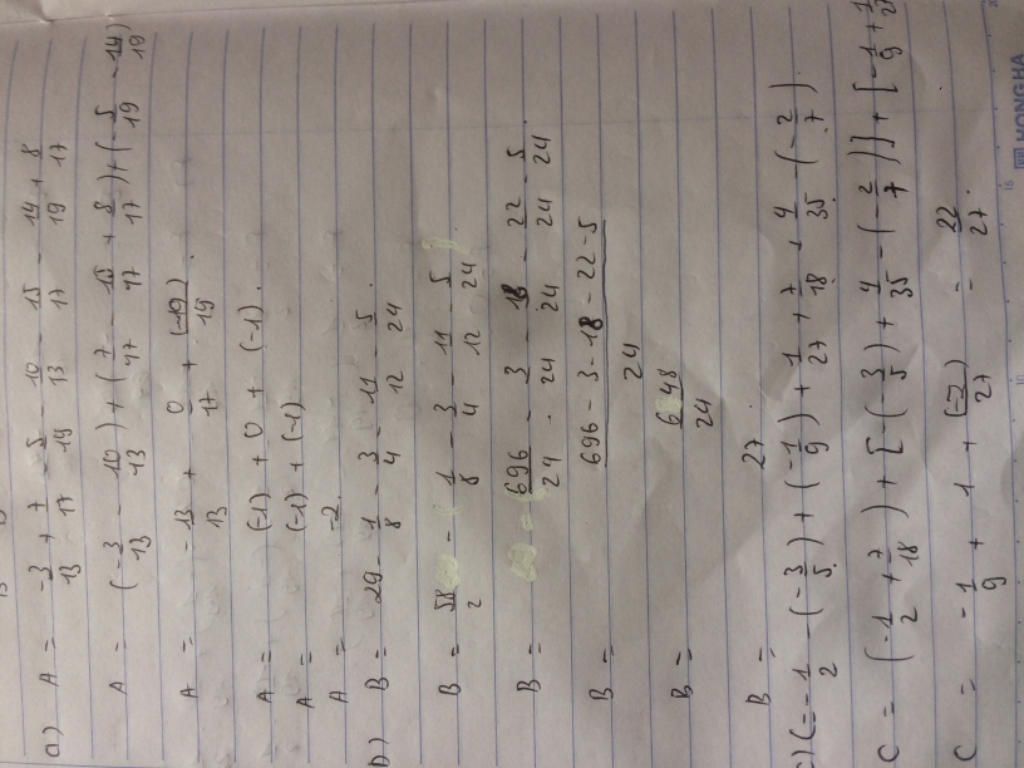 a) A = -3/13 + 7/17 - 5/19 - 10/13 - 15/17 - 14/19 + 8/17
A = (-3/13 - 10/13) + (7/17 - 15/17 + 8/17) + (-5/19 - 14/19)
A = -13/13 + 0/17 + (-19)/19.
A = (-1) + 0 + (-1).
A = (-1) + (-1)
A = -2.
b) B = 29 - 1/8 - 3/4 - 11/12 - 5/24
B = 58/2 - 1/8 - 3/4 - 11/12 - 5/24
B = 696/24 - 3/24 - 18/24 - 22/24 - 5/24
B = 696 - 3 - 18 - 22 - 5/24
B = 648/24
B = 27
c) C = -1/2 - (-3/5) + (-1/9) + 1/27 + 7/18 + 4/35 - (-2/7)
C = (-1/2 + 7/18) + [-(-3/5) + 4/35 - (-2/7)] + [-1/9 +
C = -1/9 + 1 + (-2)/27 = 22/27.
HONGHA